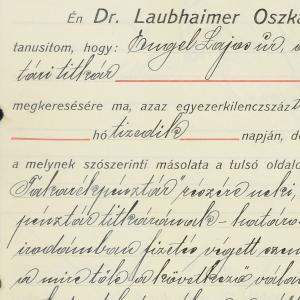 Én Dr. Laubhaimer Oszká
tanusitom, hogy: Engel Lajos úr a
tári titkár
megkeresésére ma, azaz egyezerkilenczszáz
hó tizedik napján, de
a melynek szószerinti másolata a tulsó oldalo
Takarékpénztár" részére neki,
pénztár titkárának - határo
irodámban fizetés végett szem
a mire tőle a következő vála